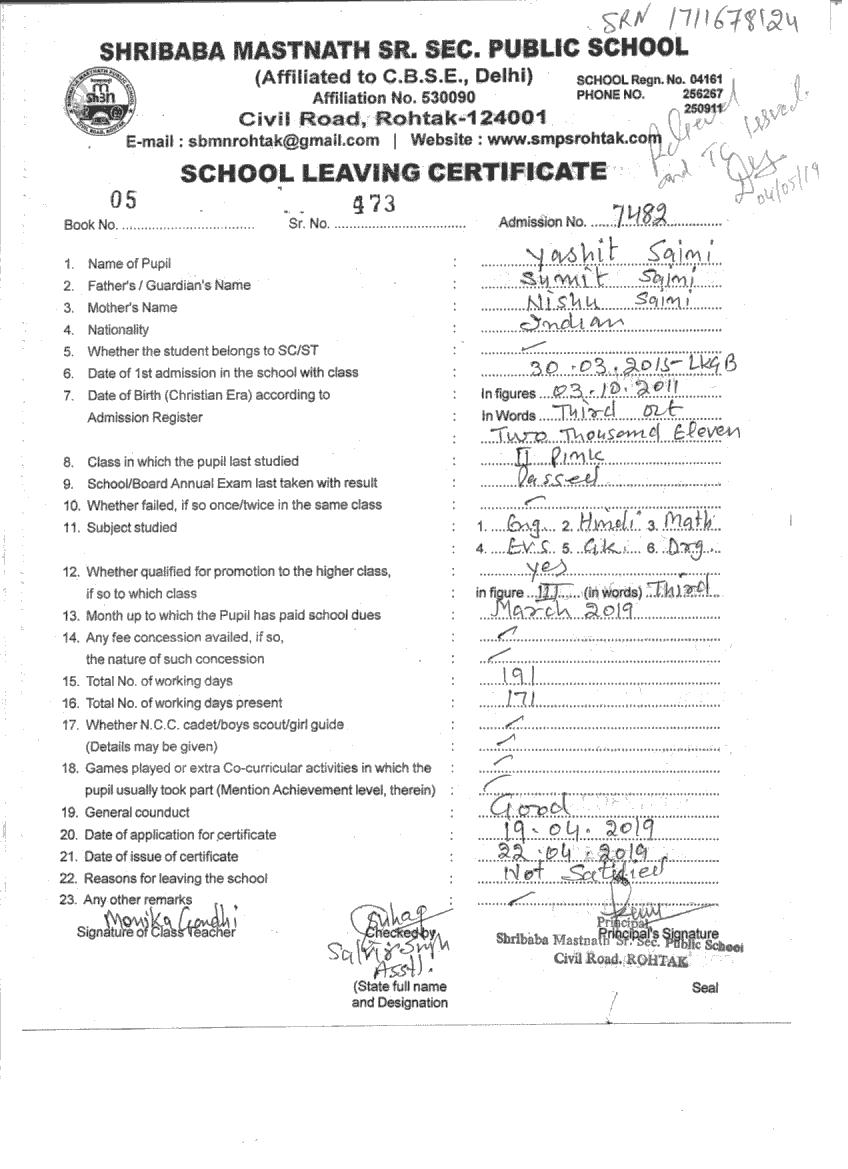 SRN 1711678124
SHRIBABA MASTNATH SR. SEC. PUBLIC SCHOOL
(Affiliated to C.B.S.E., Delhi)
SCHOOL Regn. No. 04161
Affiliation No. 530090
PHONE NO. 256267
250911
Civil Road, Rohtak-124001
E-mail : sbmnrohtak@gmail.com | Website : www.smpsrohtak.com
and TC issued.
04/05/19
SCHOOL LEAVING CERTIFICATE
Book No. 05 Sr. No. 473 Admission No. 7482
1. Name of Pupil : Yashit Saini
2. Father's / Guardian's Name : Sumit Saini
3. Mother's Name : Nishu Saini
4. Nationality : Indian
5. Whether the student belongs to SC/ST :
6. Date of 1st admission in the school with class : 30.03.2015-LKG B
7. Date of Birth (Christian Era) according to : In figures 03.10.2011
Admission Register In Words Third oct
: Two Thousand Eleven
8. Class in which the pupil last studied : II Pink
9. School/Board Annual Exam last taken with result : Passed
10. Whether failed, if so once/twice in the same class :
11. Subject studied : 1. Eng. 2. Hindi 3. Math
: 4. E.V.S. 5. G.K. 6. Drg.
12. Whether qualified for promotion to the higher class, : yes
if so to which class : in figure III (in words) Third
13. Month up to which the Pupil has paid school dues : March 2019
14. Any fee concession availed, if so, :
the nature of such concession :
15. Total No. of working days : 191
16. Total No. of working days present : 171
17. Whether N.C.C. cadet/boys scout/girl guide :
(Details may be given) :
18. Games played or extra Co-curricular activities in which the :
pupil usually took part (Mention Achievement level, therein) :
19. General counduct : Good
20. Date of application for certificate : 19.04.2019
21. Date of issue of certificate : 22.04.2019
22. Reasons for leaving the school : Not Satisfied
23. Any other remarks :
Monika Gandhi
Signature of Class Teacher
Suhag
Checked by
Principal
Principal's Signature
Shribaba Mastnath Sr. Sec. Public School
Civil Road, ROHTAK
Asstt.
(State full name
and Designation
Seal